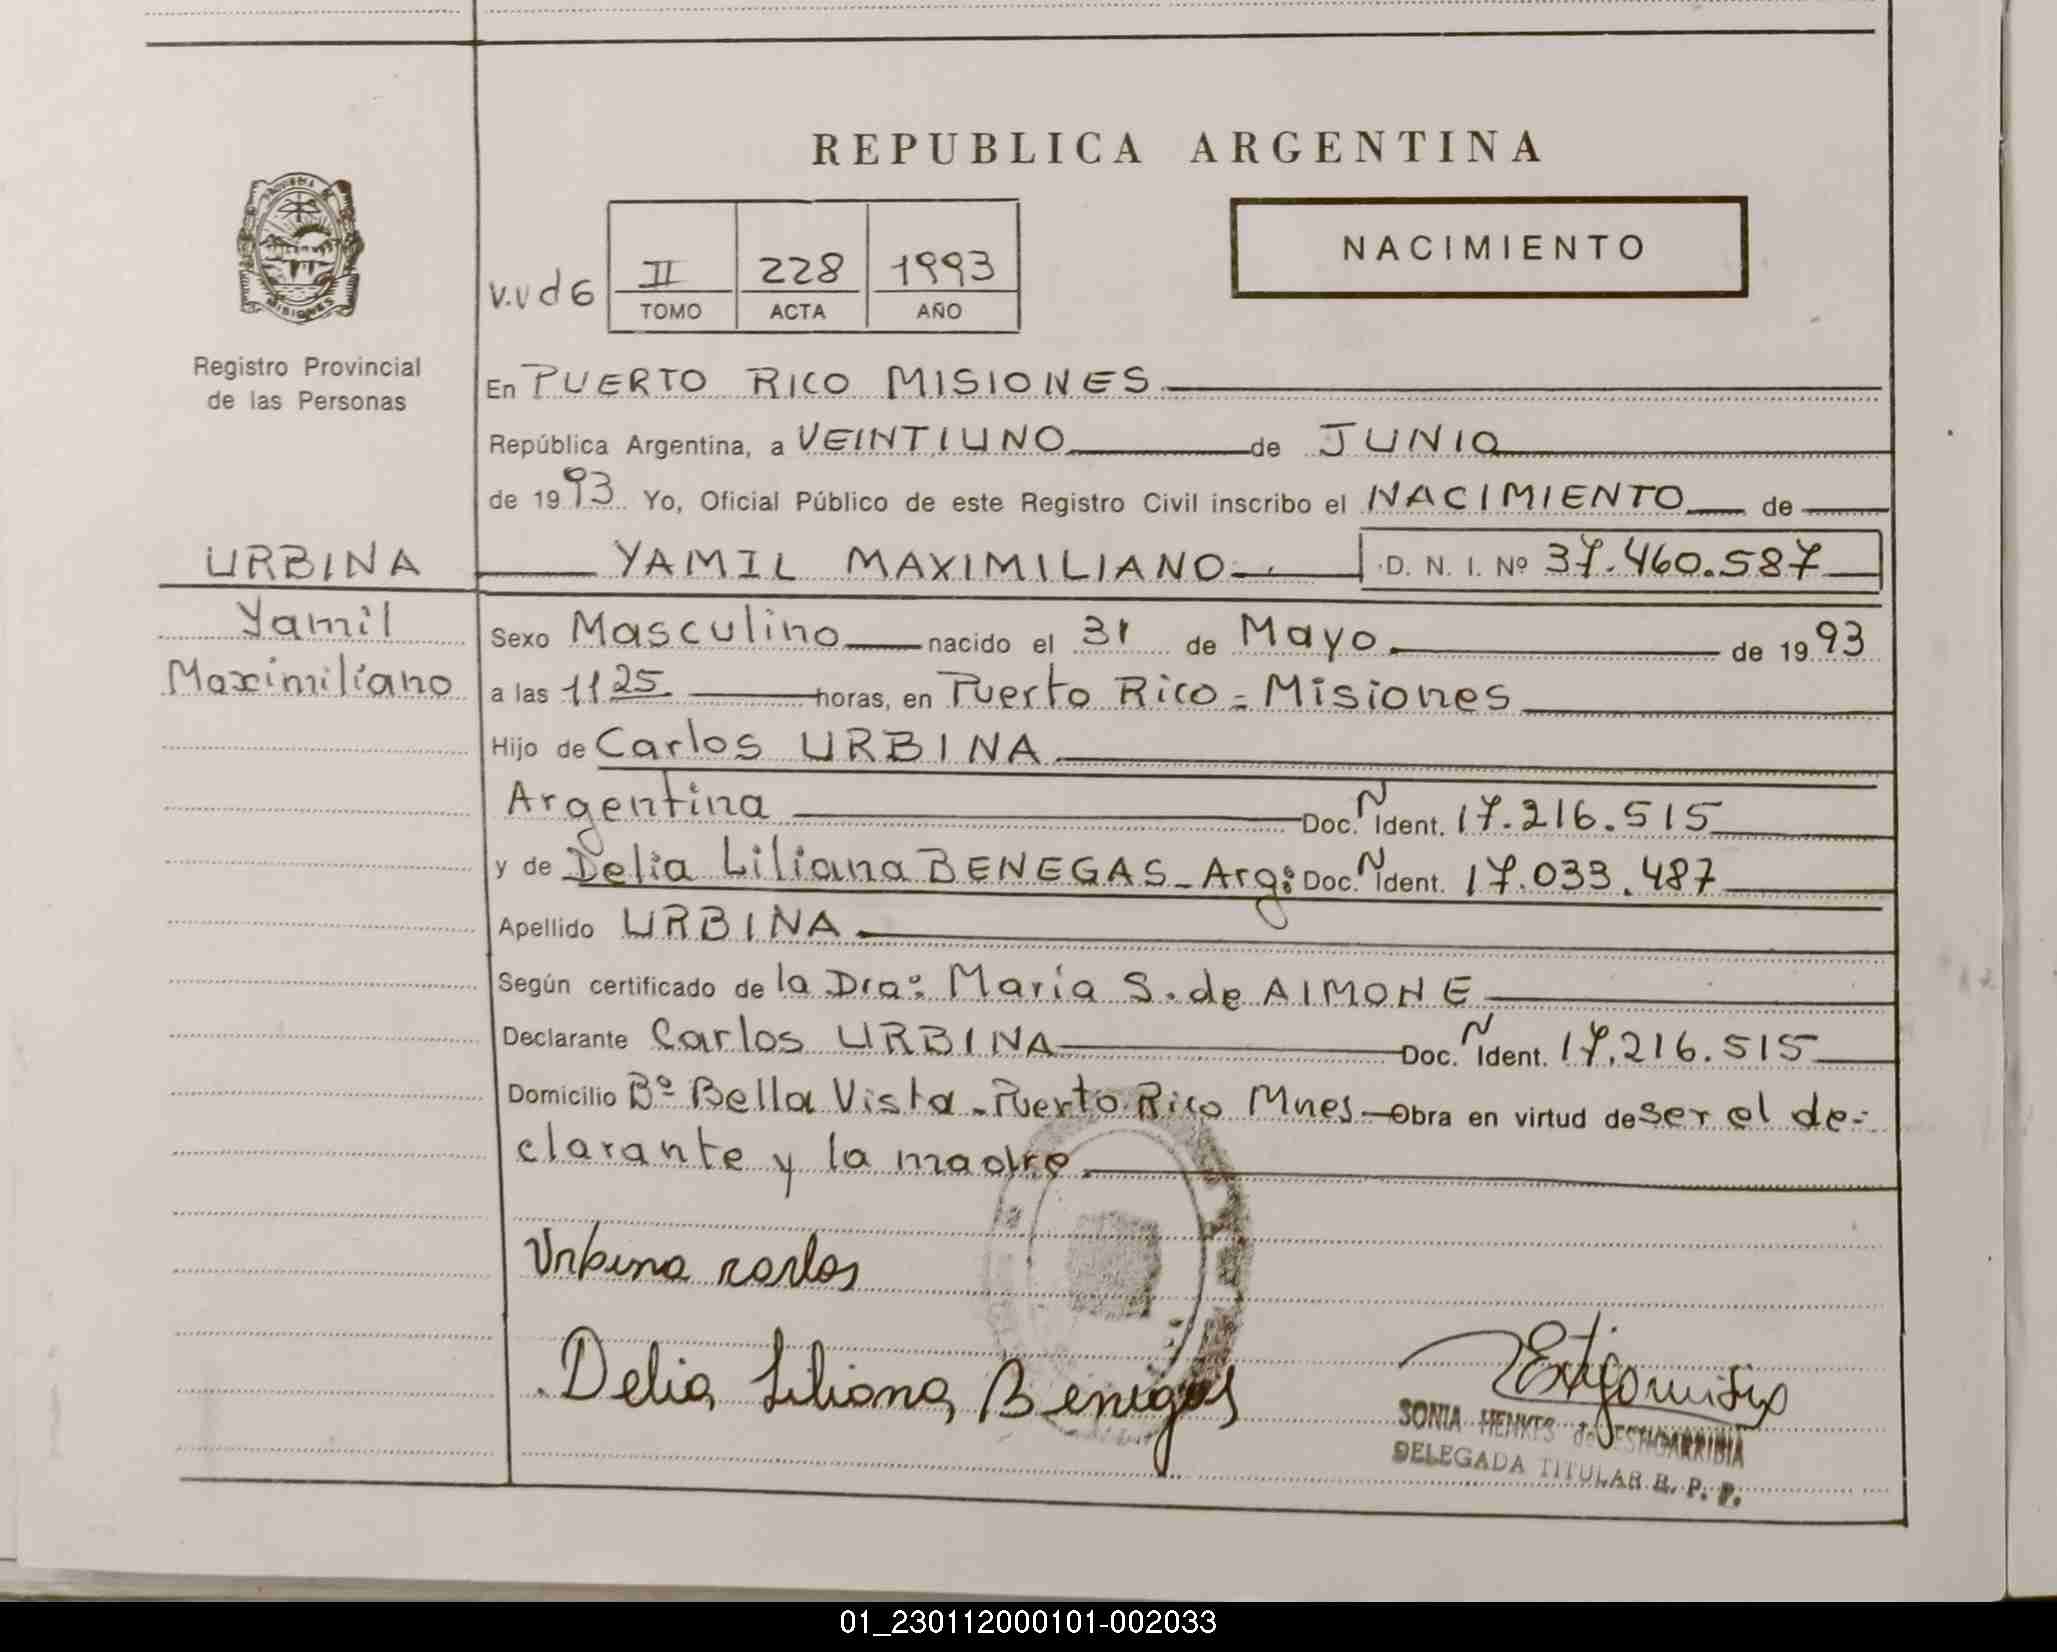 REPUBLICA ARGENTINA
NACIMIENTO
V.V d 6
II 228 1993
TOMO ACTA AÑO
MISIONES
Registro Provincial
de las Personas
En PUERTO RICO MISIONES
República Argentina, a VEINTIUNO de JUNIO
de 1993 Yo, Oficial Público de este Registro Civil inscribo el NACIMIENTO de
URBINA YAMIL MAXIMILIANO D. N. I. Nº 37.460.587
Yamil
Maximiliano
Sexo Masculino nacido el 31 de Mayo de 1993
a las 11 25 horas, en Puerto Rico = Misiones
Hijo de Carlos URBINA
Argentina Doc. N Ident. 17.216.515
y de Delia Liliana BENEGAS - Arg: Doc. N Ident. 17.033.487
Apellido URBINA
Según certificado de la Dra: María S. de AIMONE
Declarante Carlos URBINA Doc. N Ident. 17.216.515
Domicilio Bº Bella Vista - Puerto Rico Mnes Obra en virtud de ser el de-
clarante y la madre
Urbina carlos
Delia Liliana Benegas
SONIA HENKES de ESTIGARRIBIA
DELEGADA TITULAR R. P. P.
01_230112000101-002033